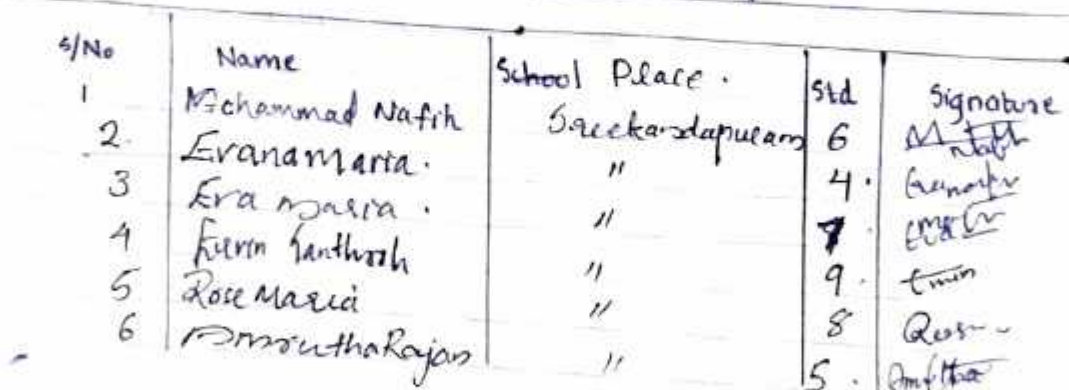 S/No Name School Place. Std Signature
1 Mohammad Nafih Sreekandapuram 6
2. Evana Maria. " 4.
3 Eva Maria. " 7
4 " 9.
5 Rose Maria " 8
6 Amrutha Rajan " 5.